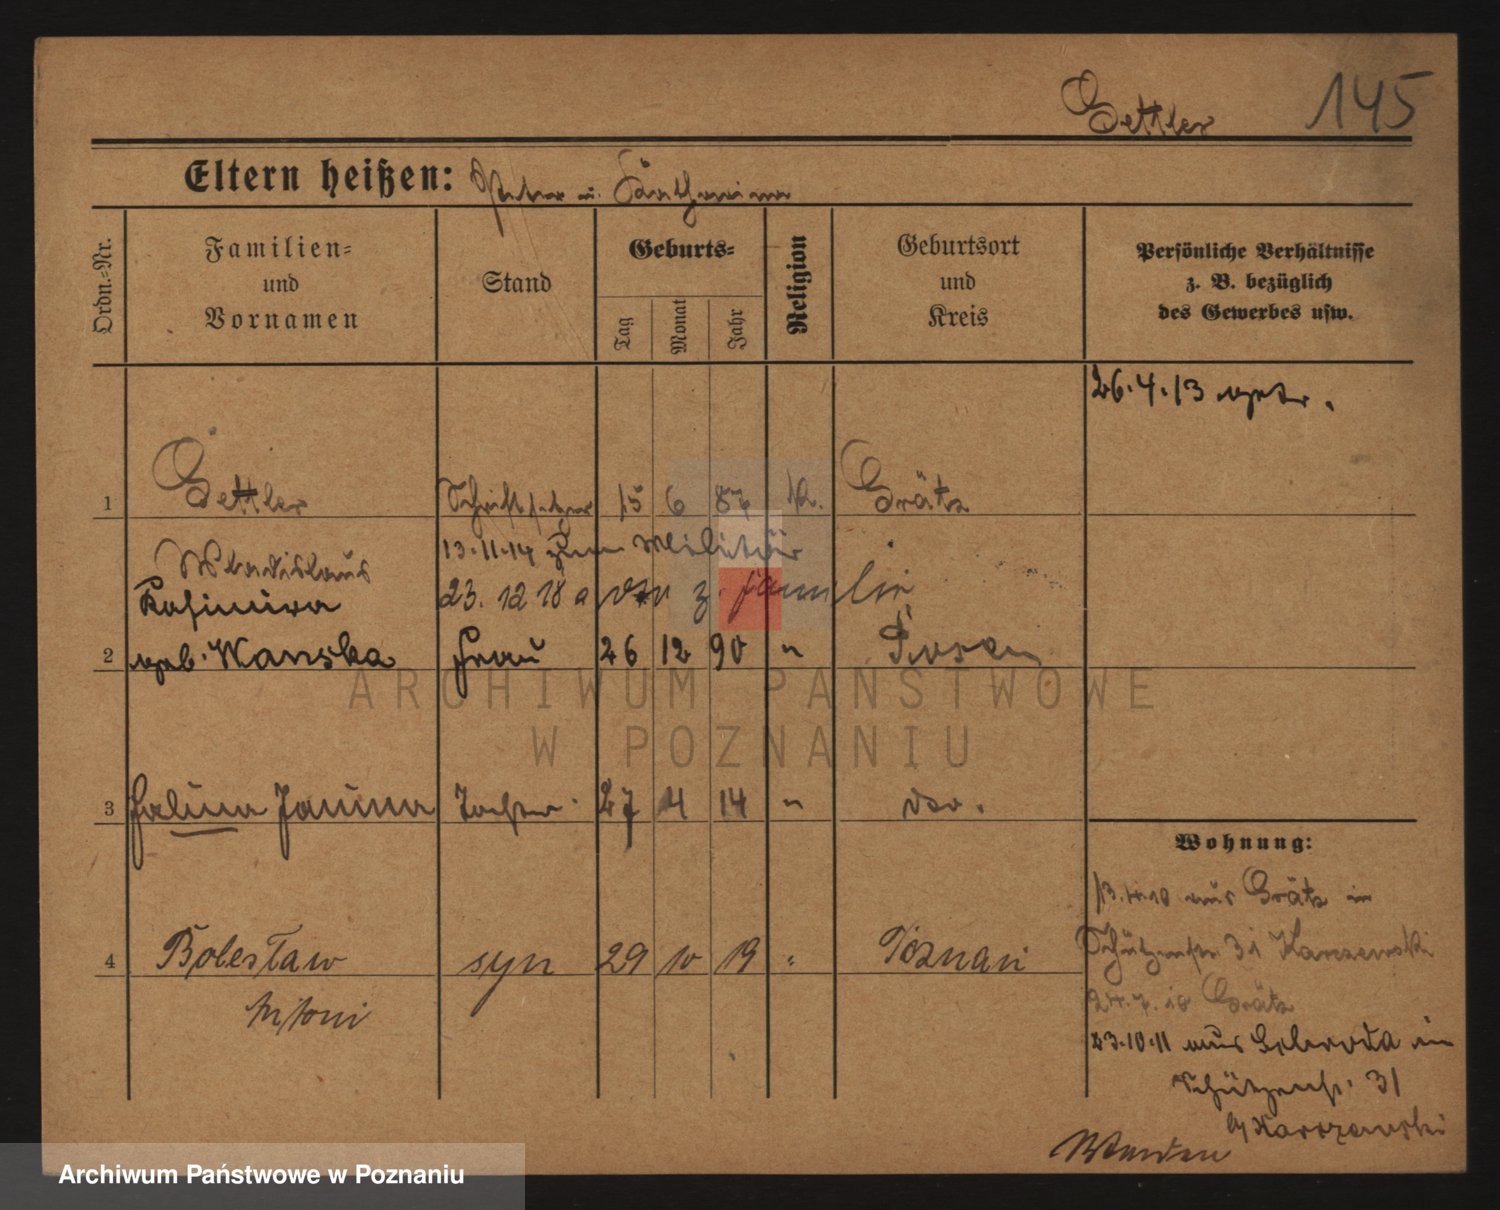 Gettler 145
Eltern heißen: Peter u. Katharina
Ordn.-Nr.
Familien-
und
Vornamen
Stand
Geburts-
Tag
Monat
Jahr
Religion
Geburtsort
und
Kreis
Persönliche Verhältnisse
z. B. bezüglich
des Gewerbes usw.
26.4.13 getr.
1 Gettler Schriftsetzer 15 6 87 k. Grätz
Wladislaus 13.11.14 zum Militär
Kasimira 23. 12 18 z. Familie
2 geb. Wanska Frau 26 12 90 " Posen
ARCHIWUM PAŃSTWOWE
W POZNANIU
3 Halina Janina Tochter 27 4 14 " dto.
Wohnung:
13.4.10 aus Grätz in
4 Bolesław syn 29 10 19 " Poznań
Schützenstr 31 Karzewski
Antoni
24.7.10 Grätz
23.10.11 aus in
Schützenstr. 31
b/ Karzewski
Wenden
Archiwum Państwowe w Poznaniu